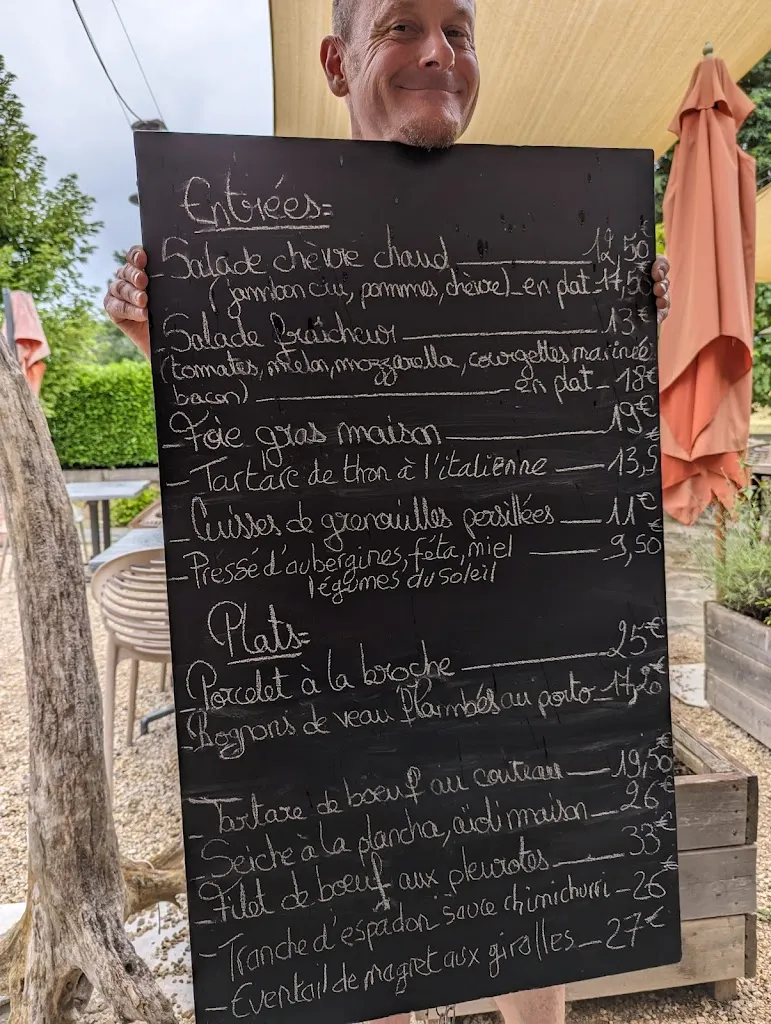 Entrées=
- Salade chèvre chaud 12,50€
(jambon cru, pommes, chèvre) en plat 17,50€
- Salade fraîcheur 13€
(tomates, melon, mozzarella, courgettes marinées
bacon) en plat 18€
- Foie gras maison 19€
- Tartare de thon à l'italienne 13,5
- Cuisses de grenouilles persillées 11€
- Pressé d'aubergines, féta, miel 9,50
légumes du soleil
Plats=
- Porcelet à la broche 25€
- Rognons de veau flambés au porto 17,20€
- Tartare de boeuf au couteau 19,50€
- Seiche à la plancha, aïoli maison 26€
- Filet de boeuf aux pleurotes 33€
- Tranche d'espadon sauce chimichurri 26€
- Eventail de magret aux girolles 27€